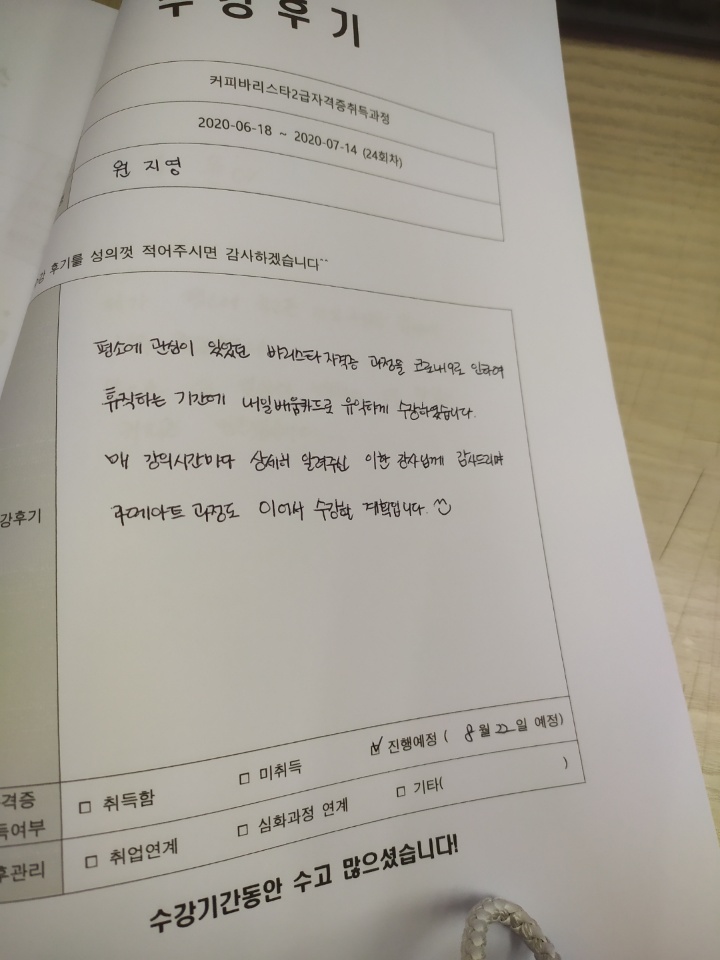 수강후기
커피바리스타2급자격증취득과정
2020-06-18 ~ 2020-07-14 (24회차)
원지영
후기를 성의껏 적어주시면 감사하겠습니다^^
강후기
평소에 관심이 있었던 바리스타 자격증 과정을 코로나19로 인하여
휴직하는 기간에 내일배움카드로 유익하게 수강하였습니다.
매 강의시간마다 상세히 알려주신 이한 강사님께 감사드리며
라떼아트 과정도 이어서 수강할 계획입니다.
격증
득여부
□ 취득함 □ 미취득 ☑ 진행예정 ( 8월 22일 예정)
후관리
□ 취업연계 □ 심화과정 연계 □ 기타( )
수강기간동안 수고 많으셨습니다!